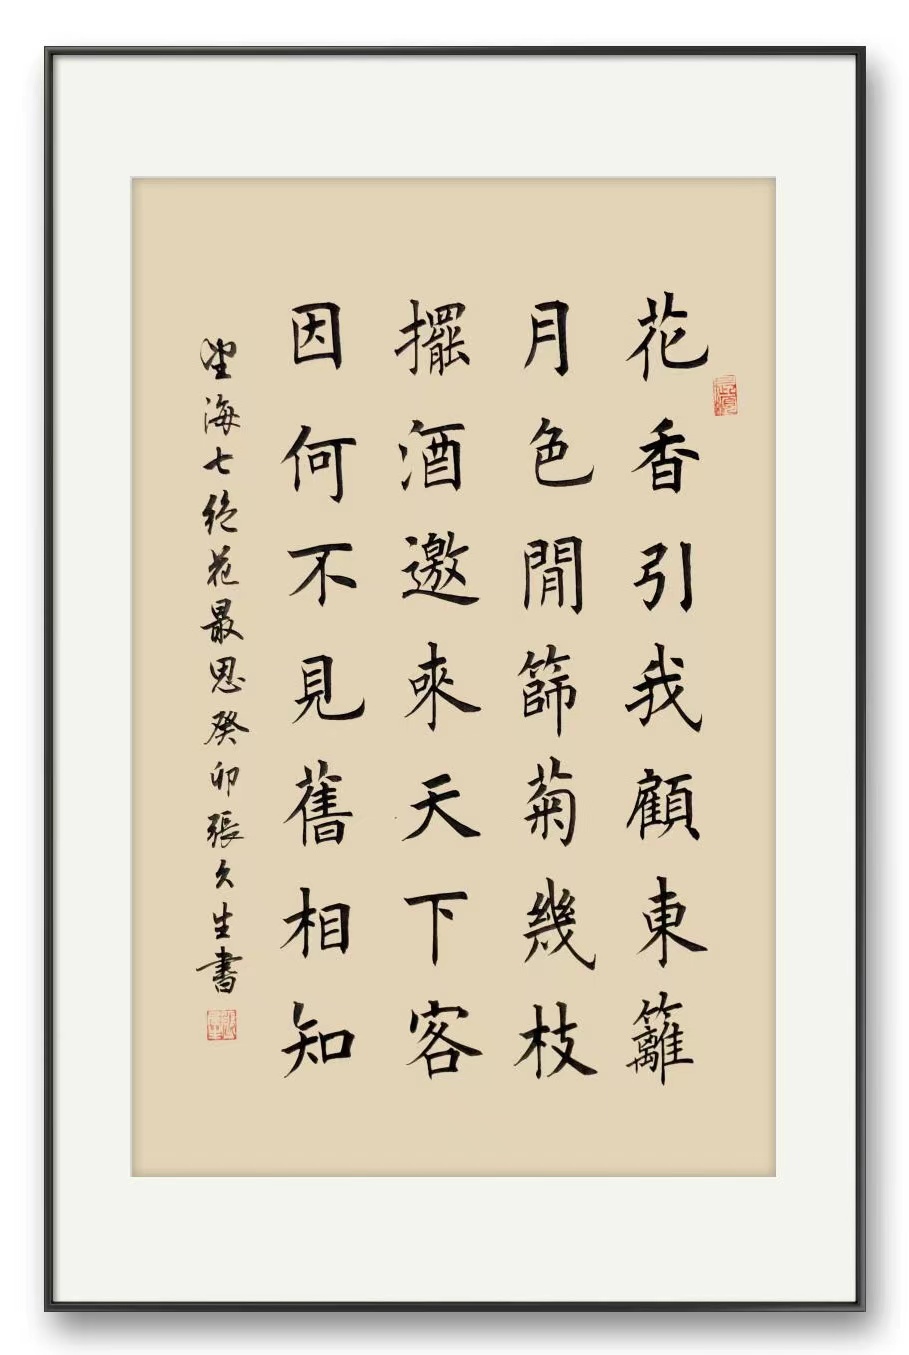 花香引我顧東籬
月色閒篩菊幾枝
擺酒邀來天下客
因何不見舊相知
望海七絕花最思癸卯張久生書